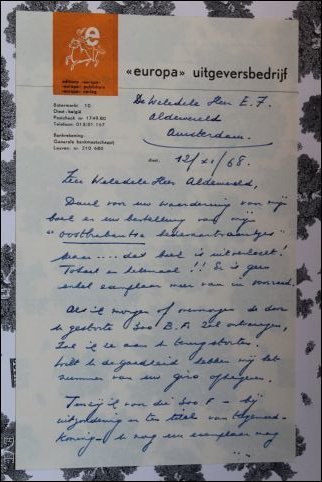 e
editions «europa»
«europa» publishers
«europa» verlag
«europa» uitgeversbedrijf
Botermarkt 10
Diest - belgië
Postcheck nr 1749.80
Telefoon: 013/31.167
Bankrekening:
Generale bankmaatschappij
Leuven nr 210.680
De Weledele Heer E. F.
Aldewereld
Amsterdam.
diest, 12/XI/68.
Zeer Weledele Heer Aldewereld,
Dank voor uw waardering van mijn
boek en uw bestelling van mijn
"oostbrabantse
maar .... dat boek is uitverkocht!
Totaal en helemaal!! Er is geen
enkel exemplaar meer van in voorraad.
Als ik morgen of overmorgen de door
u gestorte 300 B.F. zal ontvangen,
zal ik ze aan u terugstorten.
Wilt u de goedheid hebben mij het
nummer van uw giro op te geven.
Tenzij ik voor die 300 F - bij
uitzondering en ten titel van tegemoet-
koming - u nog een exemplaar mag